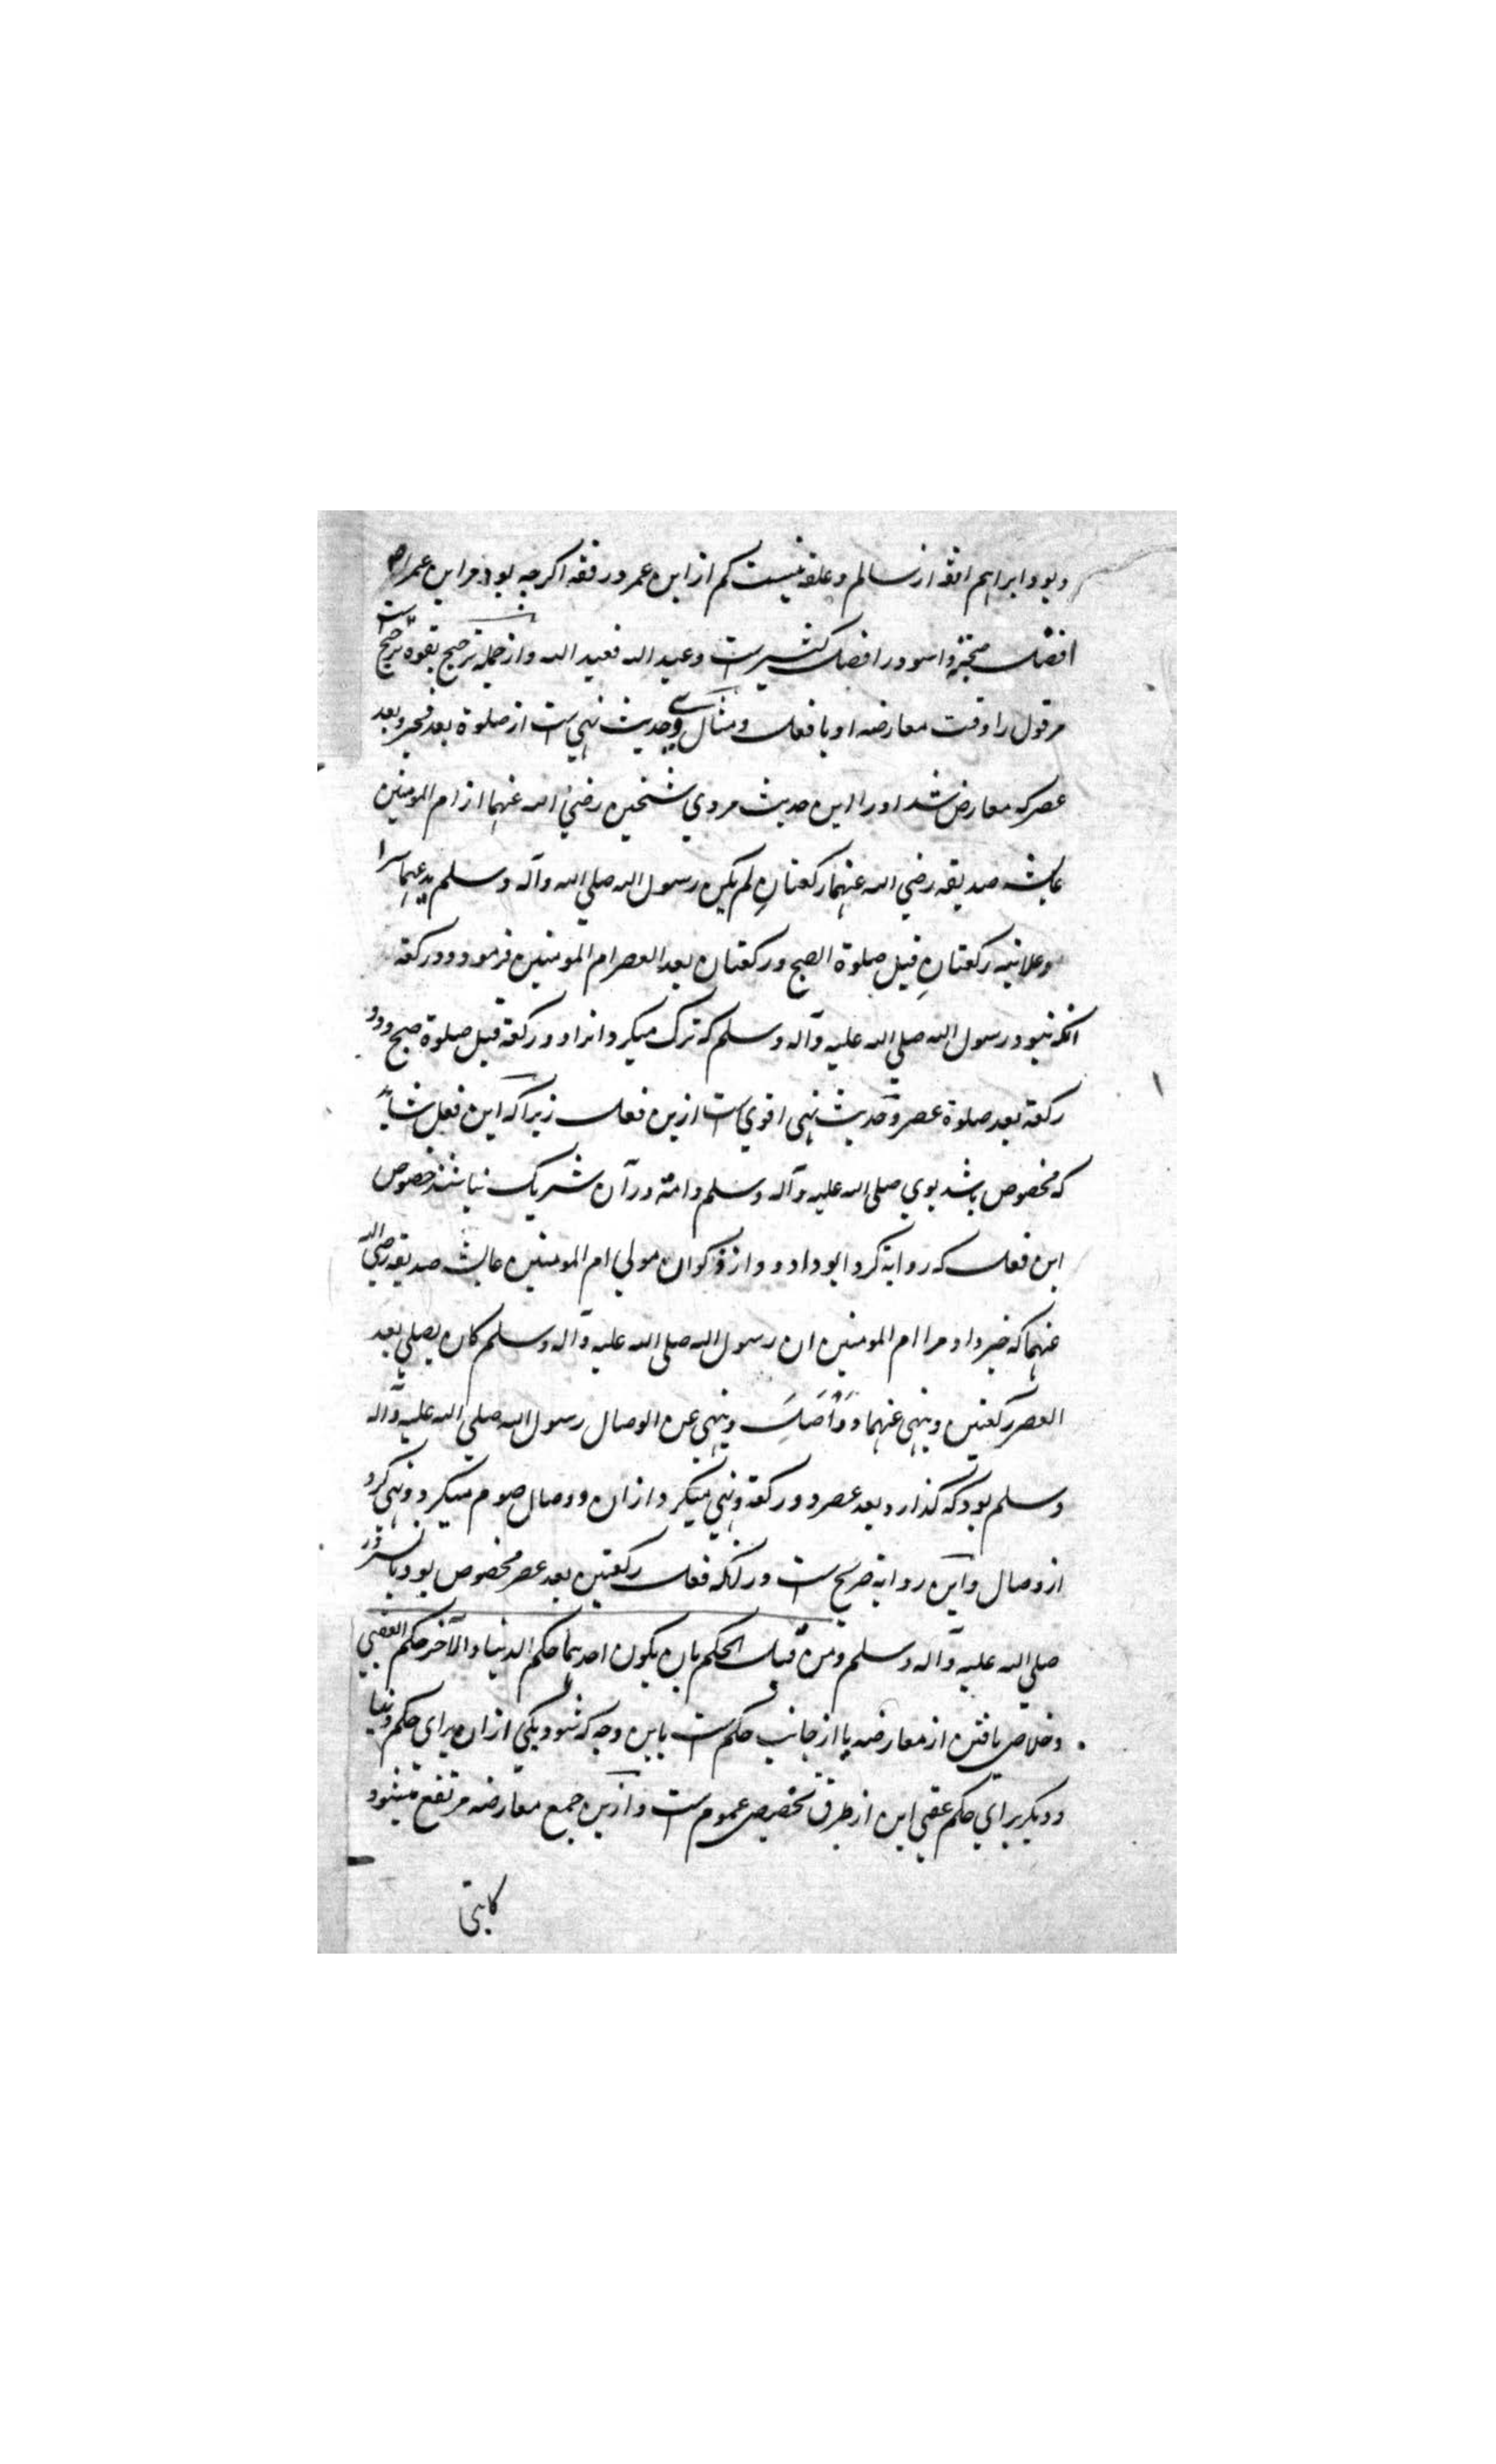 و بود ابراهیم افقه از سالم و علقمه نیست کم از ابن عمر در فقه اگرچه بود مر ابن عمر را
افضل صحبة و اسود را فضل کثیر ست و عبد الله فعبد الله و از جمله ترجیح بقوة ترجیح ست
مر قول را وقت معارضه او با فعل و مثال وی حدیث نهی ست از صلوة بعد فجر و بعد
عصر که معارض شد او را این حدیث مروی شیخین رضی الله عنهما از ام المومنین
عایشه صدیقه رضی الله عنهما رکعتانِ لم یکن رسول الله صلی الله وآله وسلم یدعهما سرا
وعلانیه رکعتانِ قبل صلوة الصبح ورکعتان بعد العصر ام المومنین فرمود دو رکعة
انکه نبود رسول الله صلی الله علیه وآله وسلم که ترک میکرد انرا دو رکعة قبل صلوة صبح و دو
رکعة بعد صلوة عصر و حدیث نهی اقوی ست ازین فعل زیراکه این فعل شاید
که مخصوص باشد بوی صلی الله علیه وآله وسلم و امة در آن شریک نباشند خصوص
این فعل که روایة کرد ابو داود از ذکوان مولی ام المومنین عایشه صدیقه رضی الله
عنهما که خبر داد مرا ام المومنین ان رسول الله صلی الله علیه وآله وسلم کان یصلی بعد
العصر رکعتین وینهی عنهما و وَاصَلَ وینهی عن الوصال رسول الله صلی الله علیه وآله
وسلم بود که گذارد بعد عصر دو رکعة و نهی میکرد ازان و وصال صوم میکرد و نهی کرد
از وصال و این روایة صریح ست درانکه فعل رکعتین بعد عصر مخصوص بود با سرور
صلی الله علیه وآله وسلم ومن قبل الحکم بان یکون احدیهما حکم الدنیا والآخر حکم العقبی
وخلاص یافتن از معارضه یا از جانب حکم ست باین وجه که شود یکی ازان برای حکم دنیا
و دیگر برای حکم عقبی این از طرق تخصیص عموم ست و ازین جمع معارضه مرتفع میشود